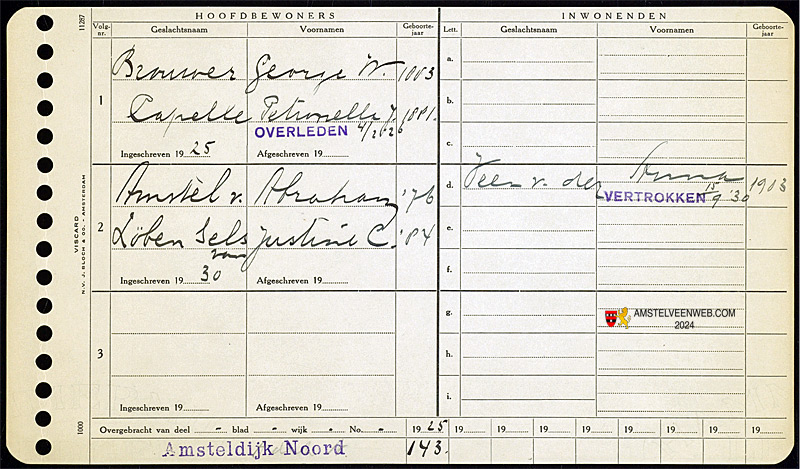 11287
HOOFDBEWONERS
INWONENDEN
Volg-nr.
Geslachtsnaam
Voornamen
Geboorte-jaar
Lett.
Geslachtsnaam
Voornamen
Geboorte-jaar
1
Brouwer George W.
Capelle Petronella J. 1881.
OVERLEDEN 4/2 '26
Ingeschreven 1925
Afgeschreven 19
a.
b.
c.
2
Amstel v. Abraham '76
Löben Sels Justine C. '84
van
Ingeschreven 1930
Afgeschreven 19
d.
Veen v. der Anna 1903
VERTROKKEN 15/9 '30
e.
f.
3
Ingeschreven 19
Afgeschreven 19
g.
h.
i.
AMSTELVEENWEB.COM
2024
VISCARD
N.V. J. BLOCH & CO. - AMSTERDAM
1000
Overgebracht van deel - blad - wijk - No. - 1925 19 19 19 19 19 19 19 19
Amsteldijk Noord 143.